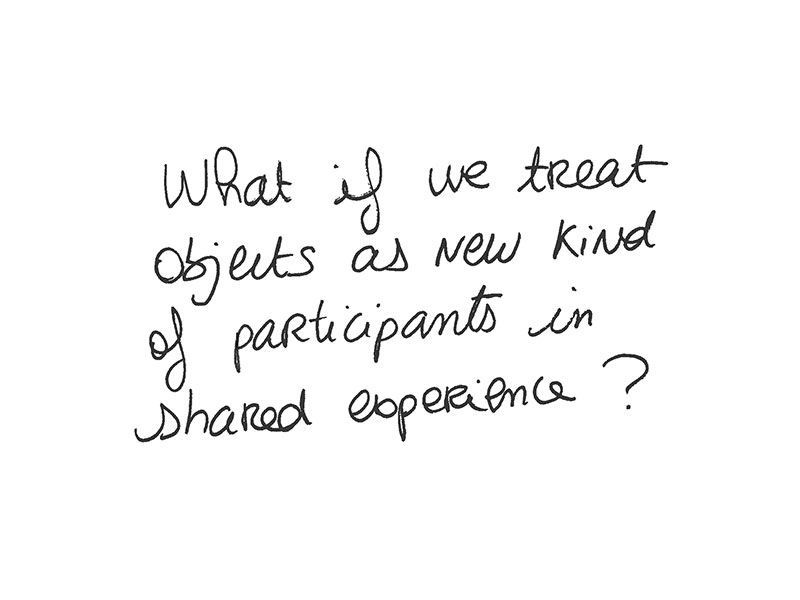 What if we treat
objects as new kind
of participants in
shared experience ?